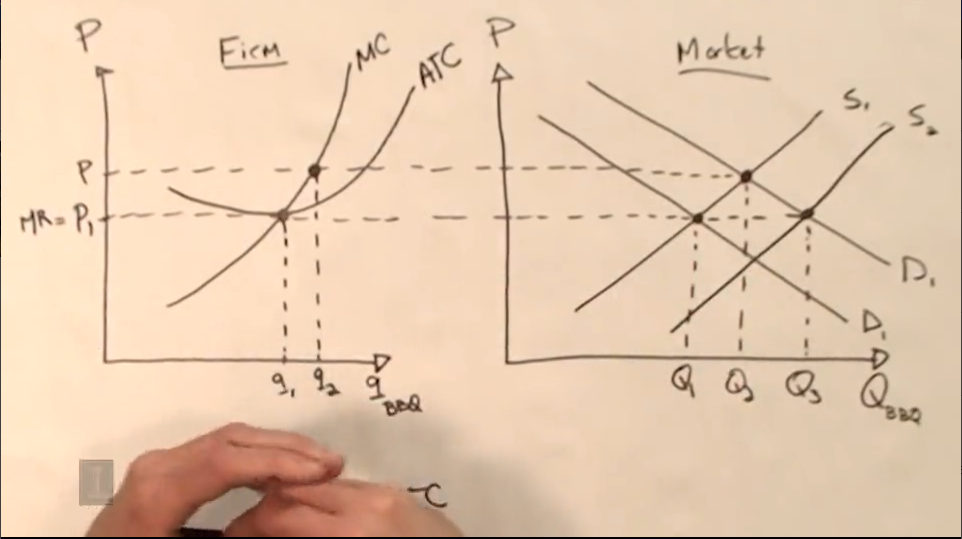 P
Firm
MC
ATC
P
MR = P₁
q₁
q₂
q BBQ
P
Market
S₁
S₂
D₁
D₁
Q₁
Q₂
Q₃
Q BBQ
C